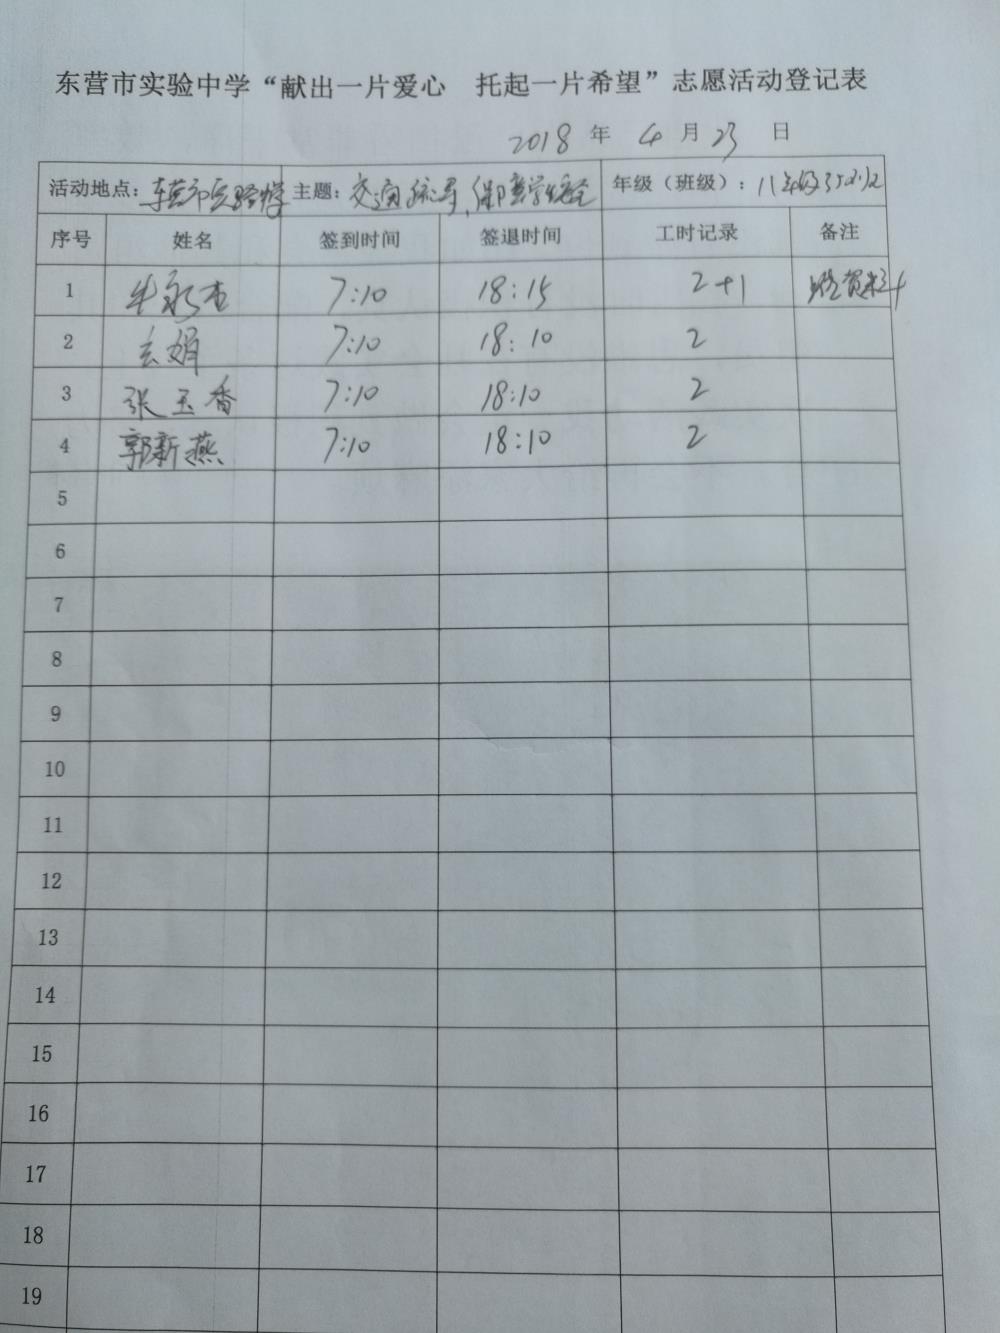 东营市实验中学“献出一片爱心 托起一片希望”志愿活动登记表
2018 年 4 月 23 日
活动地点：东营市实验中学 主题：交通疏导、保护学生安全 年级（班级）：八年级
序号 姓名 签到时间 签退时间 工时记录 备注
1 牛永杏 7:10 18:15 2+1 资料
2 玄娟 7:10 18:10 2
3 张玉香 7:10 18:10 2
4 郭新燕 7:10 18:10 2
5
6
7
8
9
10
11
12
13
14
15
16
17
18
19